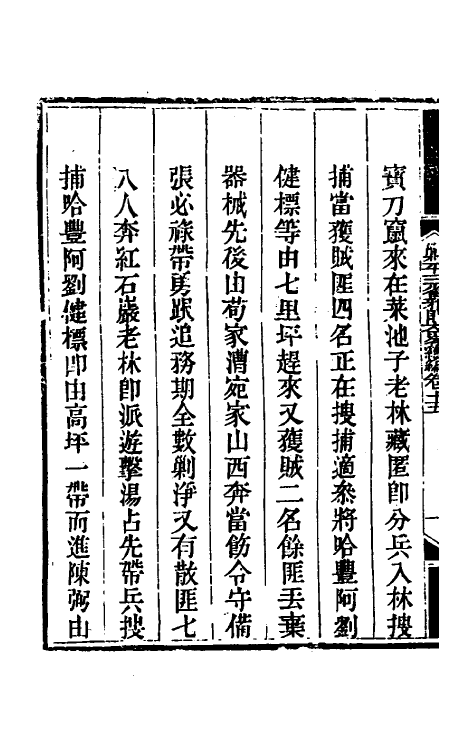 寳刀竄來在菜池子老林藏匿卽分兵入林搜
捕當獲賊匪四名正在搜捕適叅將哈豐阿劉
健標等由七里坪趕來又獲賊二名餘匪丟棄
器械先後由苟家灣宛家山西奔當飭令守備
張必祿帶勇跟追務期全數剿淨又有散匪七
八人奔紅石巖老林卽派遊擊湯占先帶兵搜
捕哈豐阿劉健標卽由高坪一帶而進陳弼由